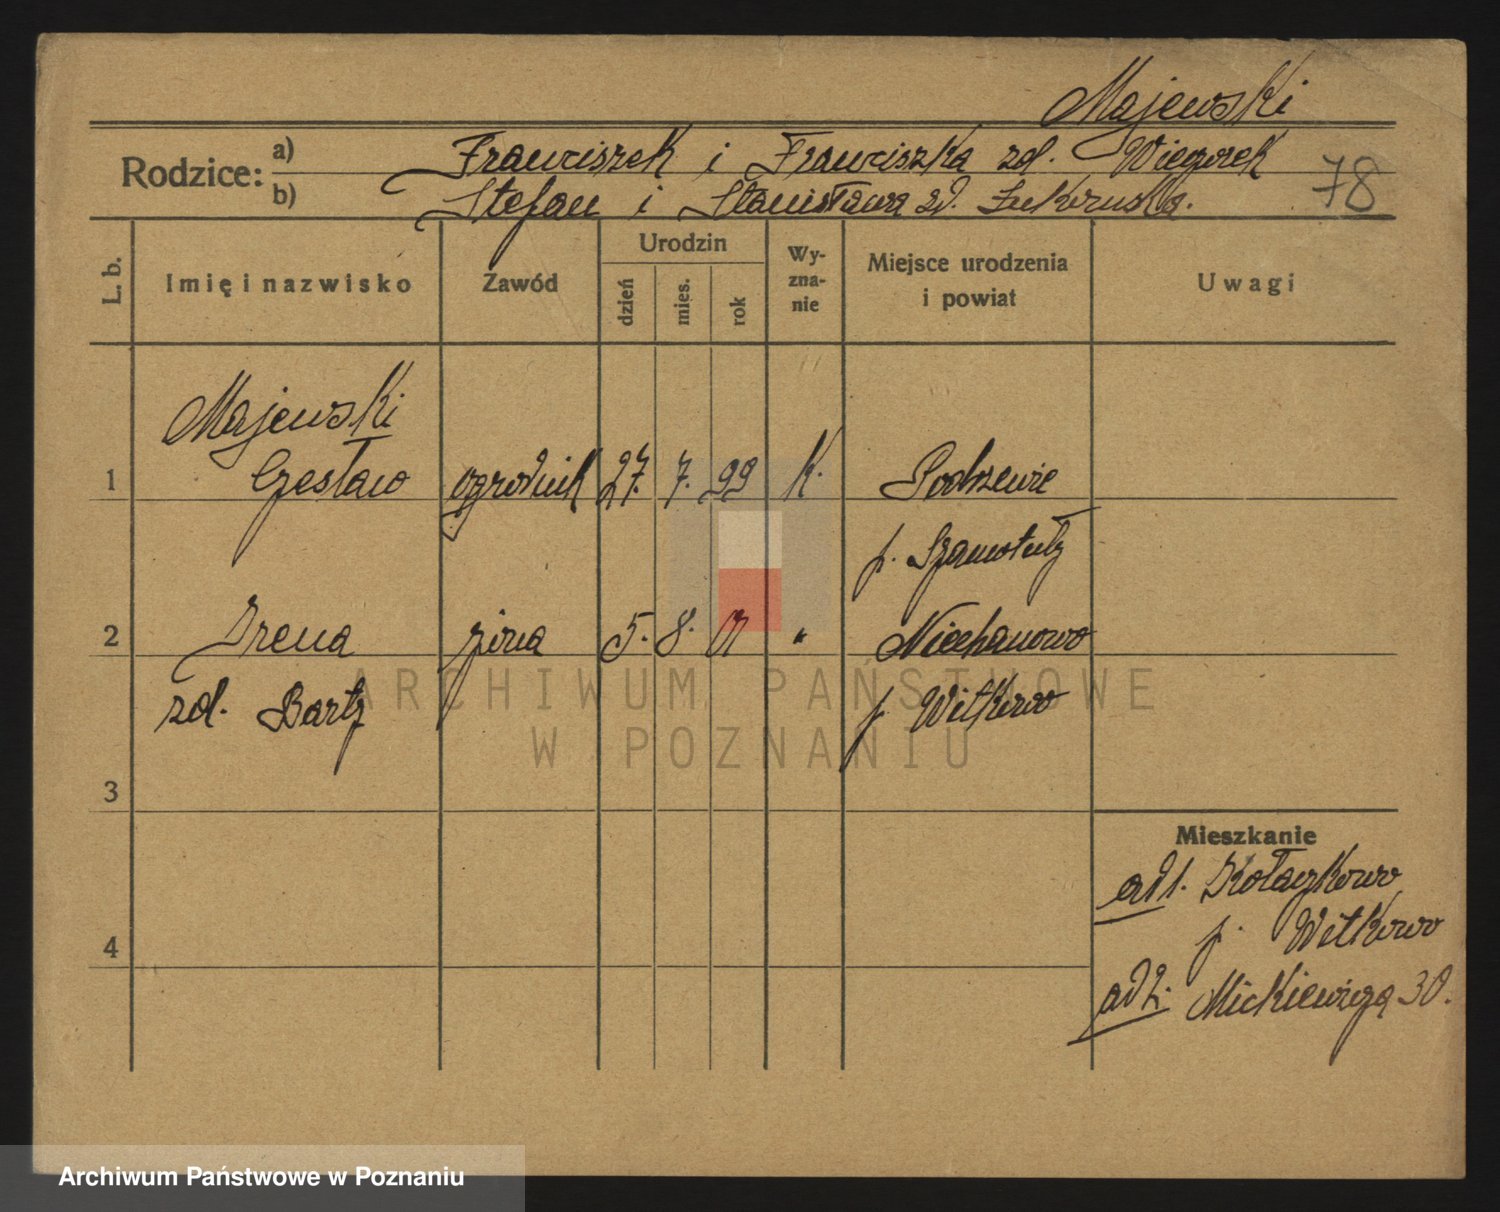 Majewski
Rodzice: a) Franciszek i Franciszka zd. Wieczorek
b) Stefan i Stanisława zd.
78
L. b.
Imię i nazwisko
Zawód
Urodzin
dzień
mies.
rok
Wy-
zna-
nie
Miejsce urodzenia
i powiat
Uwagi
Majewski
1 Czesław ogrodnik 27. 7. 99 K. Podrzewie
p. Szamotuły
2 Irena żona 5. 8. 01 " Niechanowo
zd. Bartz p. Witkowo
3
Mieszkanie
ad 1. Kołaczkowo
4 p. Witkowo
ad 2. Mickiewicza 30.
ARCHIWUM PAŃSTWOWE
W POZNANIU
Archiwum Państwowe w Poznaniu